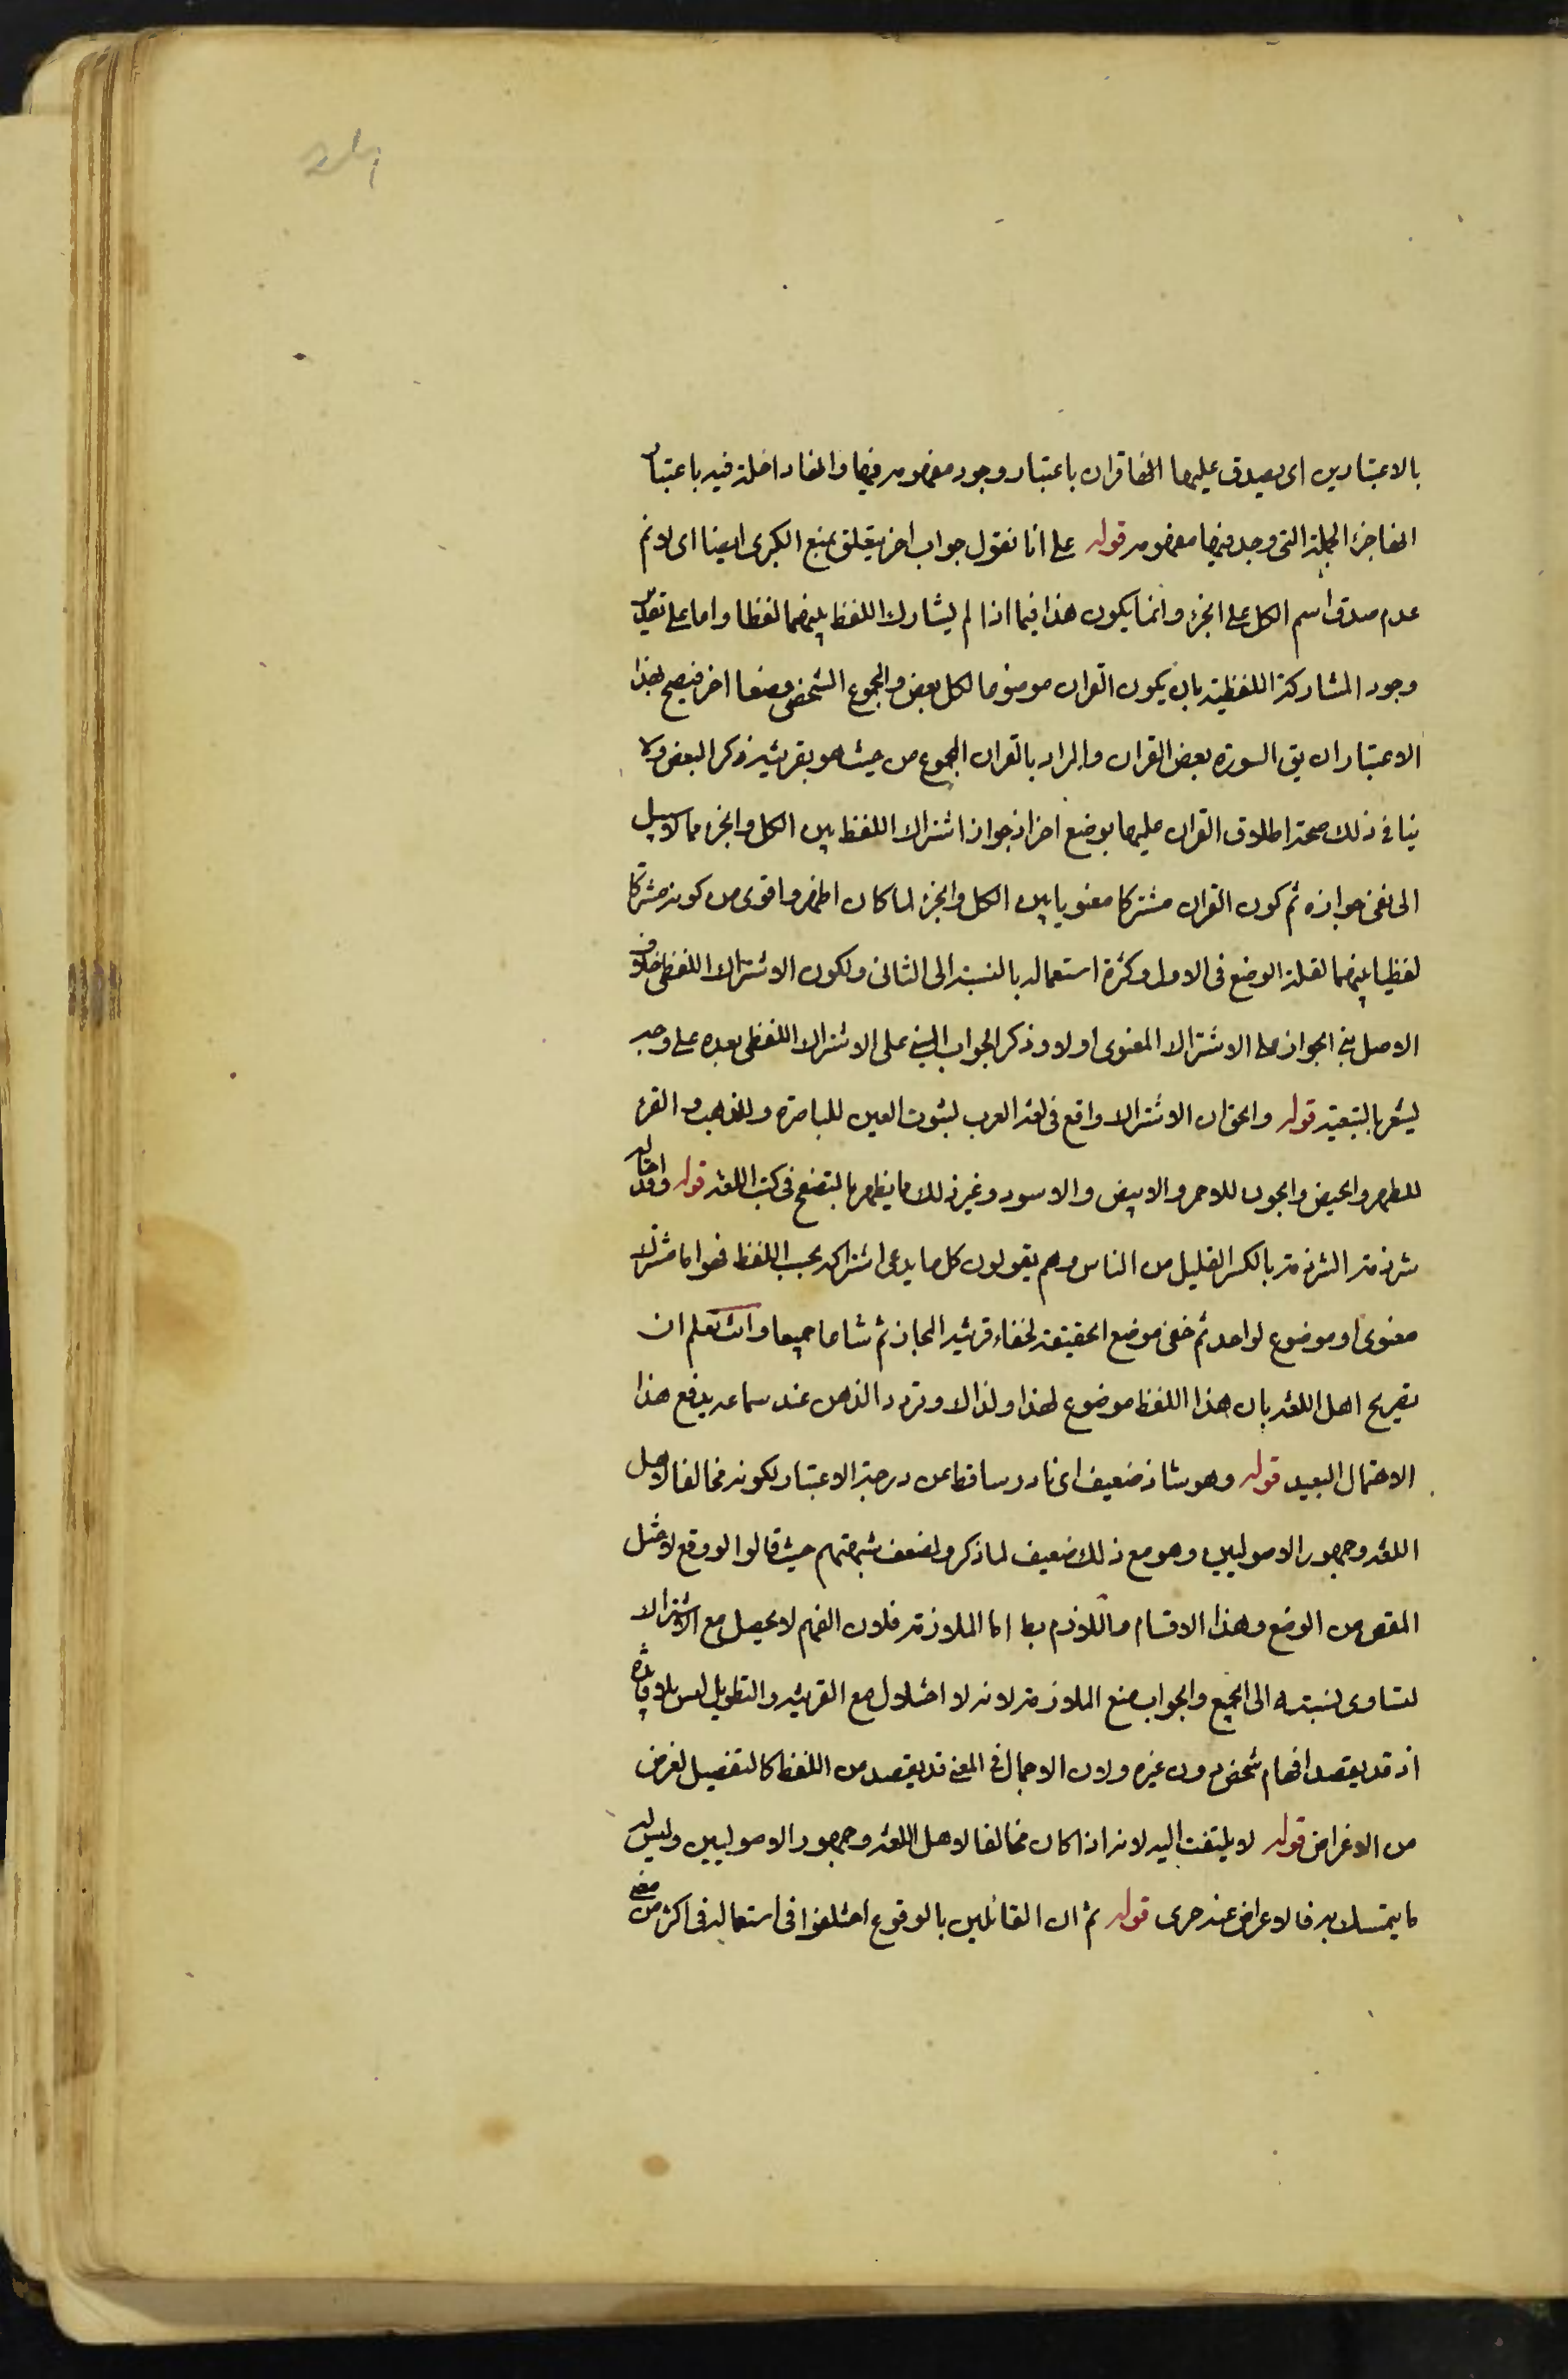 بالاعتبارين اى يصدق عليها انها قران باعتبار وجود مفهومه فيها وانها داخلة فيه باعتبار
انها جزء الجملة التى وجد فيها مفهومه قوله على انا نقول جواب اخر يتعلق بمنع الكبرى ايضا اى لا نم
عدم صدق اسم الكل على الجزء وانما يكون هذا فيما اذا لم يشارك اللفظ بينهما لفظا واما على تقدير
وجود المشاركة اللفظية بان يكون القران موضوعا لكل بعض وللمجموع الشخصى وضعا اخر فيصح بهذا
الاعتبار ان يق السورة بعض القران والمراد بالقران المجموع من حيث هو بقرينة ذكر البعض ولا
ينافى ذلك صحة اطلاق القران عليها بوضع اخر اذ جواز اشتراك اللفظ بين الكل والجزء مما لا سبيل
الى نفى جوازه ثم كون القران مشتركا معنويا بين الكل والجزء لما كان اظهر واقوى من كونه مشتركا
لفظيا بينهما لقلة الوضع فى الاول وكثرة استعماله بالنسبة الى الثانى ولكون الاشتراك اللفظى خلاف
الاصل بنى الجواز على الاشتراك المعنوى اولا وذكر الجواب المبنى على الاشتراك اللفظى بعده على وجه
يشعر بالتبعية قوله والحق ان الاشتراك واقع فى لغة العرب لثبوت العين للباصرة وللذهب والقرء
للطهر والحيض والجون للاحمر والابيض والاسود وغير ذلك ما يظهر بالتصفح فى كتب اللغة قوله وقد احاله
شرذمة الشرذمة بالكسر القليل من الناس وهم يقولون كل ما يدعى اشتراكه بحسب اللفظ فهو اما مشترك
معنوى او موضوع لواحد ثم خفى موضع الحقيقة لخفاء قرينة المجاز ثم شاعا جميعا وانت تعلم ان
تصريح اهل اللغة بان هذا اللفظ موضوع لهذا ولذاك وتردد الذهن عند سماعه يدفع هذا
الاحتمال البعيد قوله وهو شاذ ضعيف اى نادر ساقط عن درجة الاعتبار لكونه مخالفا لاهل
اللغة وجمهور الاصوليين وهو مع ذلك ضعيف لما ذكر ولضعف شبهتهم حيث قالوا لو وقع لاختل
المقص من الوضع وهذا الاقسام واللازم بط اما الملازمة فلان الفهم لا يحصل مع الاشتراك
لتساوى نسبته الى الجميع والجواب منع الملازمة لانه لا اختلال مع القرينة والتطويل ليس بلا فائدة
اذ قد يقصد افهام شخص دون غيره ولان الاجمال فى المعنى قد يقصد من اللفظ كالتفصيل لغرض
من الاغراض قوله لا يلتفت اليه لانه اذا كان مخالفا لاهل اللغة وجمهور الاصوليين وليس له
ما يتمسك به فالاعراض عنه حرى قوله ثم ان القائلين بالوقوع اختلفوا فى استعماله فى اكثر من معنى